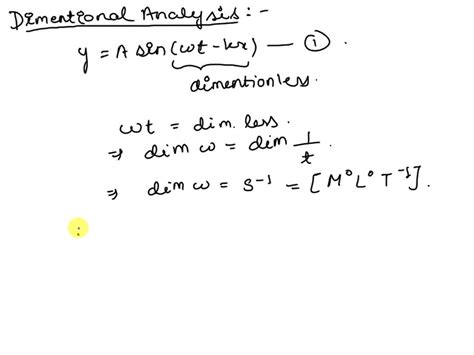 Dimentional Analysis :-
y = A sin(ωt - kx) — ①.
dimentionless.
ωt = dim. less.
⇒ dim ω = dim 1/t.
⇒ dim ω = s⁻¹ = [M⁰ L⁰ T⁻¹].
: